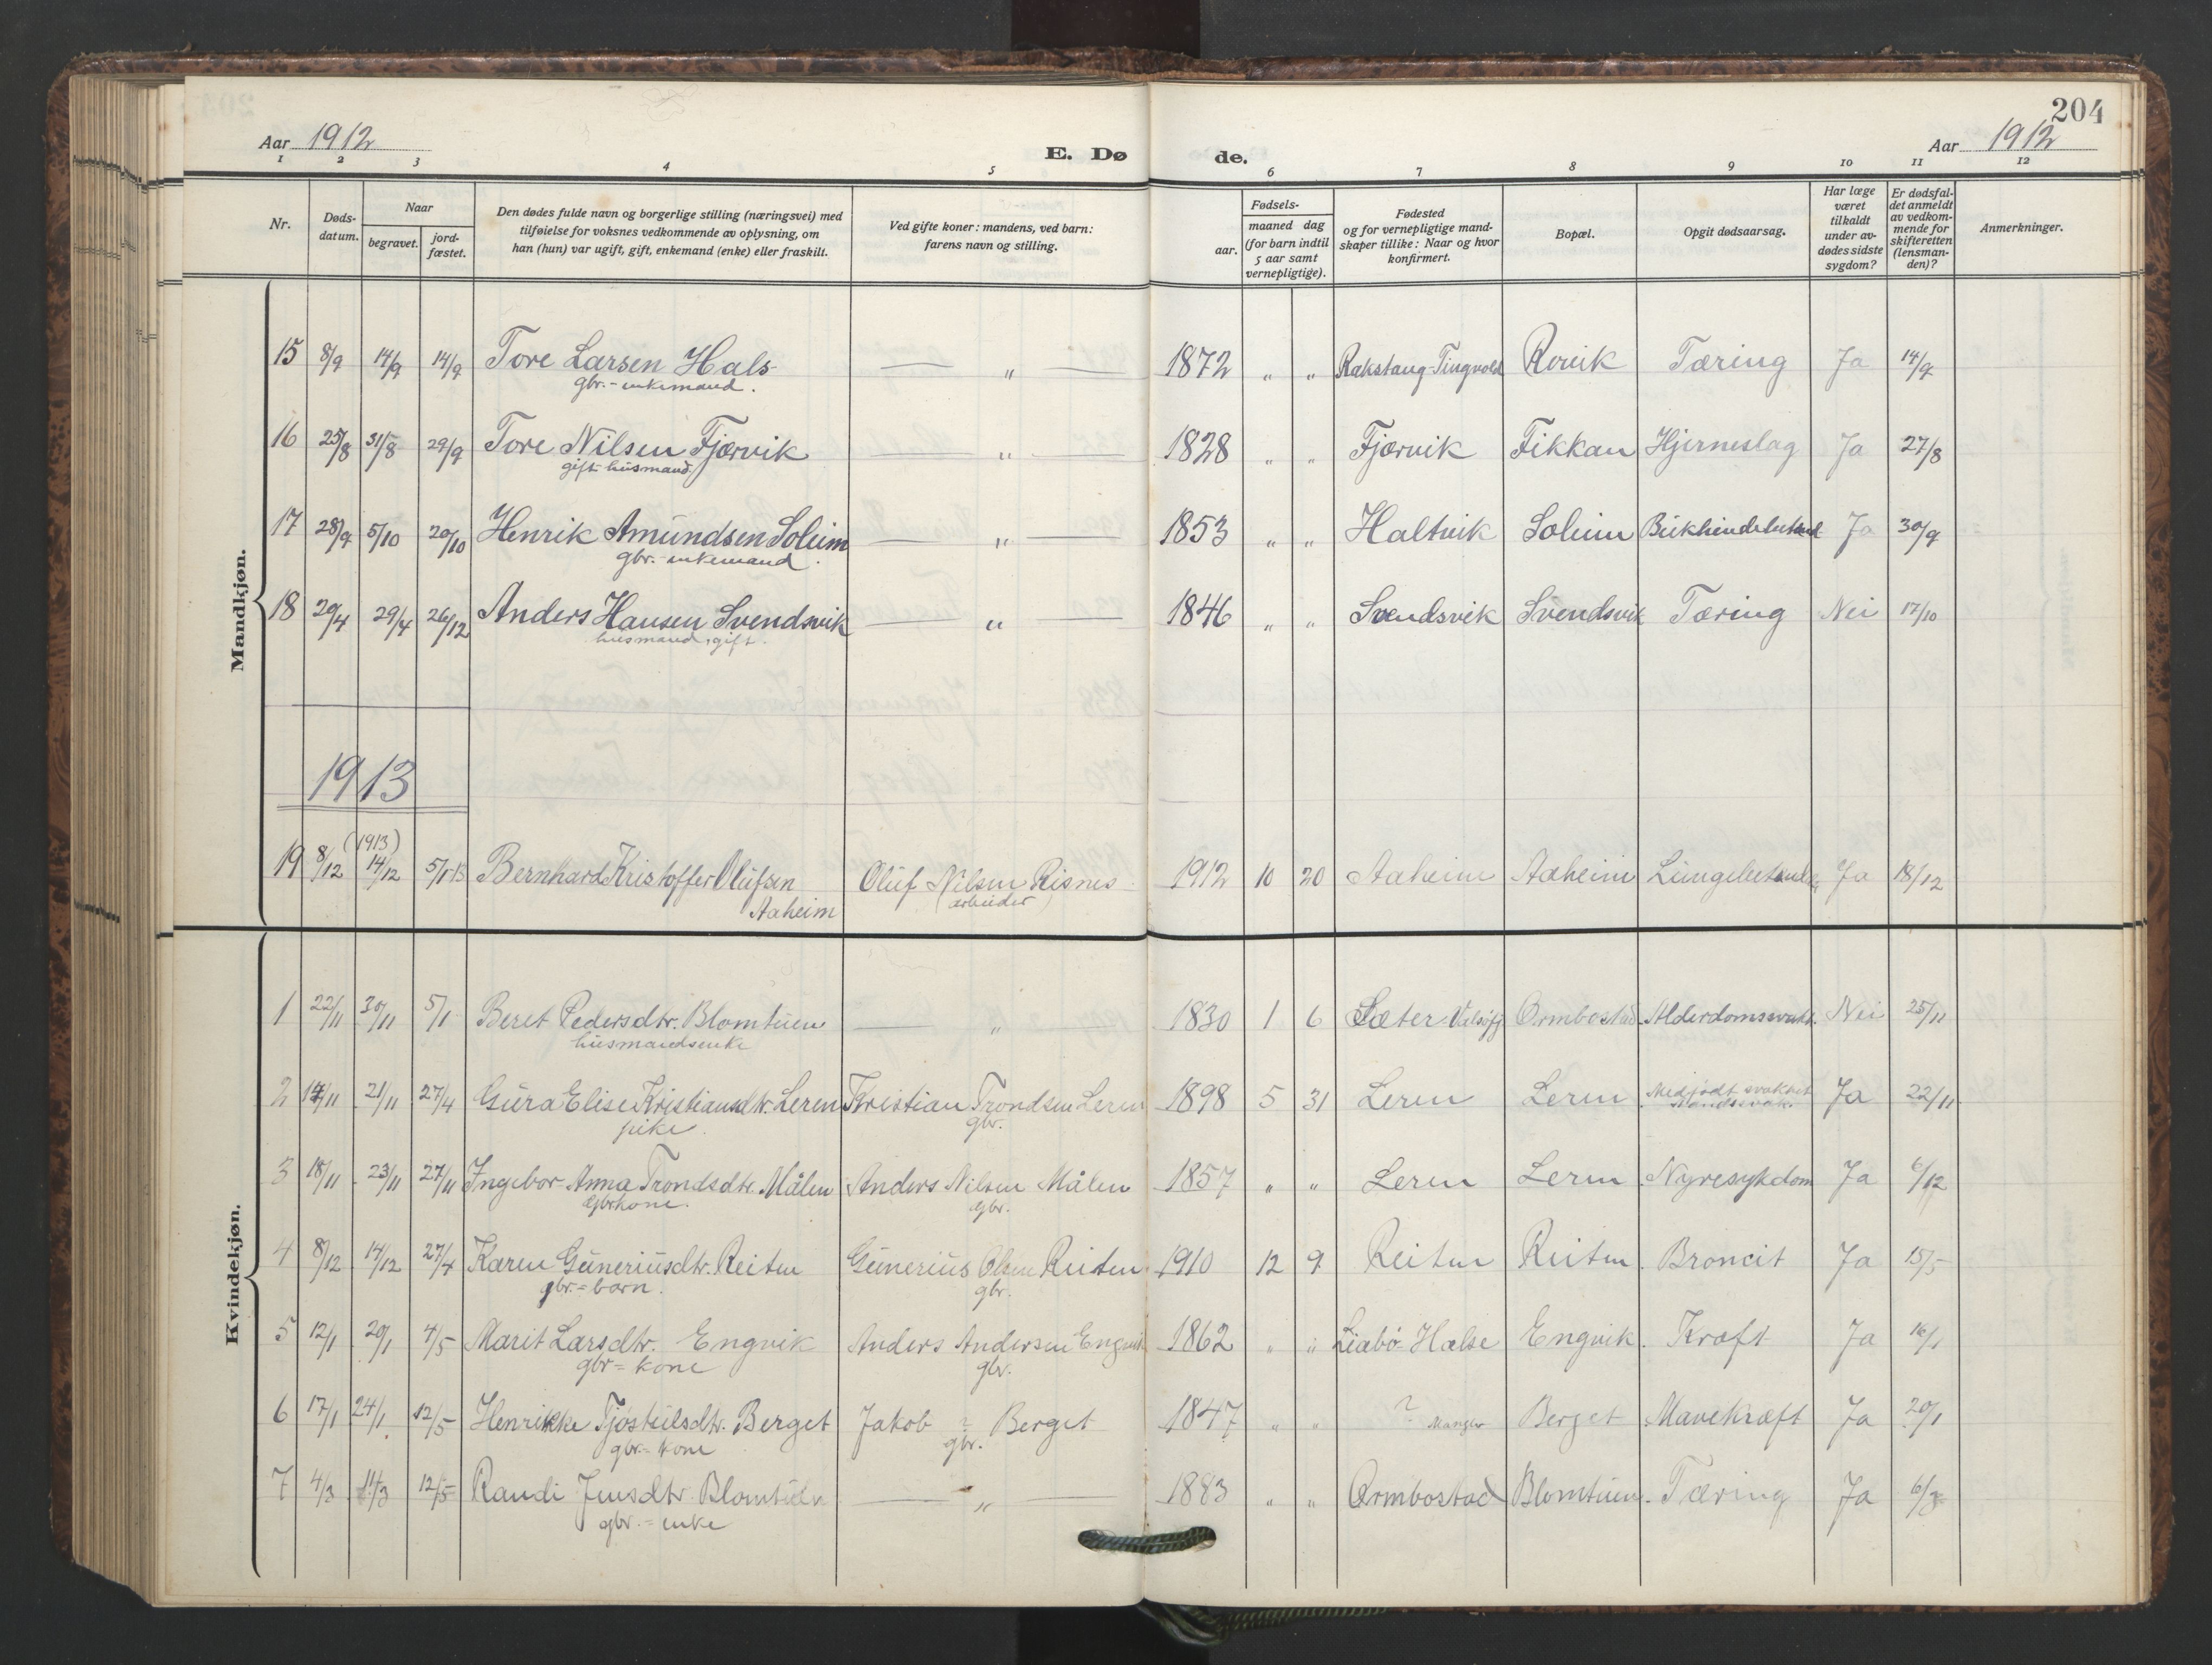 204
Aar 1912
E. Dø
de.
Aar 1912
1 2 3 4 5 6 7 8 9 10 11 12
Nr.
Døds-
datum.
Naar
begravet.
jord-
fæstet.
Den dødes fulde navn og borgerlige stilling (næringsvei) med
tilføielse for voksnes vedkommende av oplysning, om
han (hun) var ugift, gift, enkemand (enke) eller fraskilt.
Ved gifte koner: mandens, ved barn:
farens navn og stilling.
Fødsels-
aar.
maaned dag
(for barn indtil
5 aar samt
vernepligtige).
Fødested
og for vernepligtige mand-
skaper tillike: Naar og hvor
konfirmert.
Bopæl.
Opgit dødsaarsag.
Har læge
været
tilkaldt
under av-
dødes sidste
sygdom?
Er dødsfal-
det anmeldt
av vedkom-
mende for
skifteretten
(lensman-
den)?
Anmerkninger.
Mandkjøn.
15 8/9 14/9 14/9 Tore Larsen Hals — „ — 1872 „ „ Rakstang-Tingvold Rovik Tæring Ja 14/9
gbr.-enkemand.
16 25/8 31/8 29/9 Tore Nilsen Fjærvik — „ — 1828 „ „ Fjærvik Fikkan Hjerneslag Ja 27/8
gift husmand.
17 28/9 5/10 20/10 Henrik Amundsen Solum — „ — 1853 „ „ Haltvik Solum Ja 30/9
gbr.-enkemand.
18 20/4 29/4 26/12 Anders Hansen Svendsvik — „ — 1846 „ „ Svendsvik Svendsvik Tæring Nei 17/10
husmand, gift.
1913
(1913)
19 8/12 14/12 5/1-13 Bernhard Kristoffer Olufsen Oluf Nilsen Risnes 1912 10 20 Aaheim Aaheim Ja 18/12
Aaheim (arbeider)
Kvindekjøn.
1 22/11 30/11 5/1 Beret Pedersdtr. Blomtuen — „ 1830 1 6 Sæter Valsøfj Ormbostad Alderdomssvakh. Nei 25/11
husmandsenke
2 21/11 27/4 Gura Elise Kristiansdtr. Leren Kristian Trondsen Leren 1898 5 31 Leren Leren Medfødt svakhet Ja 22/11
pike. gbr.
3 18/11 23/11 27/11 Ingebor Anna Trondsdtr. Målen Anders Nilsen Målen 1857 „ „ Leren Leren Nyresykdom Ja 6/12
gbrkone. gbr.
4 8/12 14/12 27/4 Karen Guneriusdtr. Reiten Gunerius Olsen Reiten 1910 12 9 Reiten Reiten Broncit Ja 15/5
gbr.=barn. gbr.
5 12/1 20/1 4/5 Marit Larsdtr. Engvik Anders Andersen Engvik 1862 „ „ Liabø Halse Engvik Kræft Ja 16/1
gbr=kone gbr.
6 17/1 24/1 12/5 Henrikke Tjøstulsdtr. Berget Jakob ? Berget 1847 „ „ ? Mangler Berget Mavekræft Ja 20/1
gbr.=kone gbr.
7 4/3 11/3 12/5 Randi Jensdtr. Blomtuen — „ — 1883 „ „ Ormbostad Blomtuen Tæring Ja 6/3
gbr.=enke